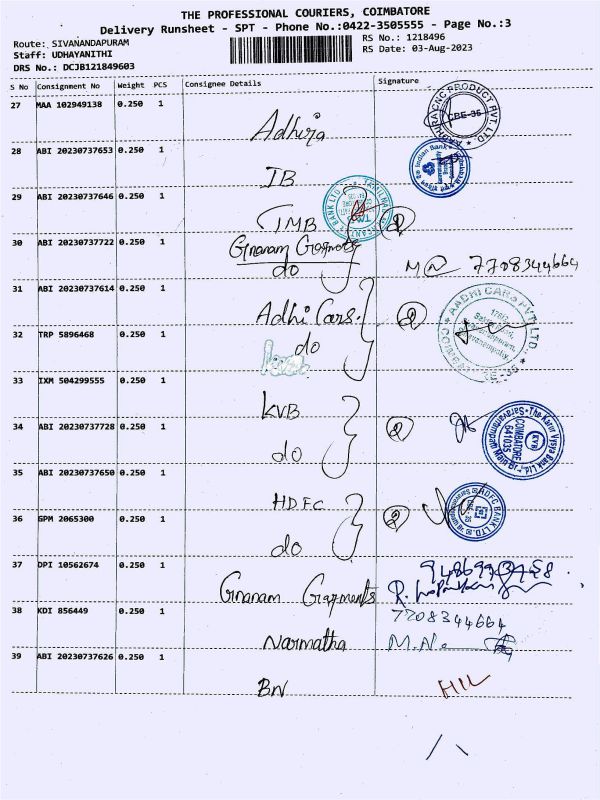 THE PROFESSIONAL COURIERS, COIMBATORE
Delivery Runsheet - SPT - Phone No.:0422-3505555 - Page No.:3
Route: SIVANANDAPURAM
RS No.: 1218496
Staff: UDHAYANITHI
RS Date: 03-Aug-2023
DRS No.: DCJB121849603
S No Consignment No Weight PCS Consignee Details Signature
27 MAA 102949138 0.250 1
CBE-35
Adhira
28 ABI 20230737653 0.250 1
IB
29 ABI 20230737646 0.250 1
TMB 2
30 ABI 20230737722 0.250 1
Gnanam Garments
do 7708344664
31 ABI 20230737614 0.250 1
Adhi Cars. 2
32 TRP 5896468 0.250 1
do
33 IXM 504299555 0.250 1
KVB
34 ABI 20230737728 0.250 1
2
do
35 ABI 20230737650 0.250 1
HDFC
36 GPM 2065300 0.250 1
2
do
37 DPI 10562674 0.250 1
Gnanam Garments
7708344664
38 KDI 856449 0.250 1
Narmatha M.N.
39 ABI 20230737626 0.250 1
BN HIL